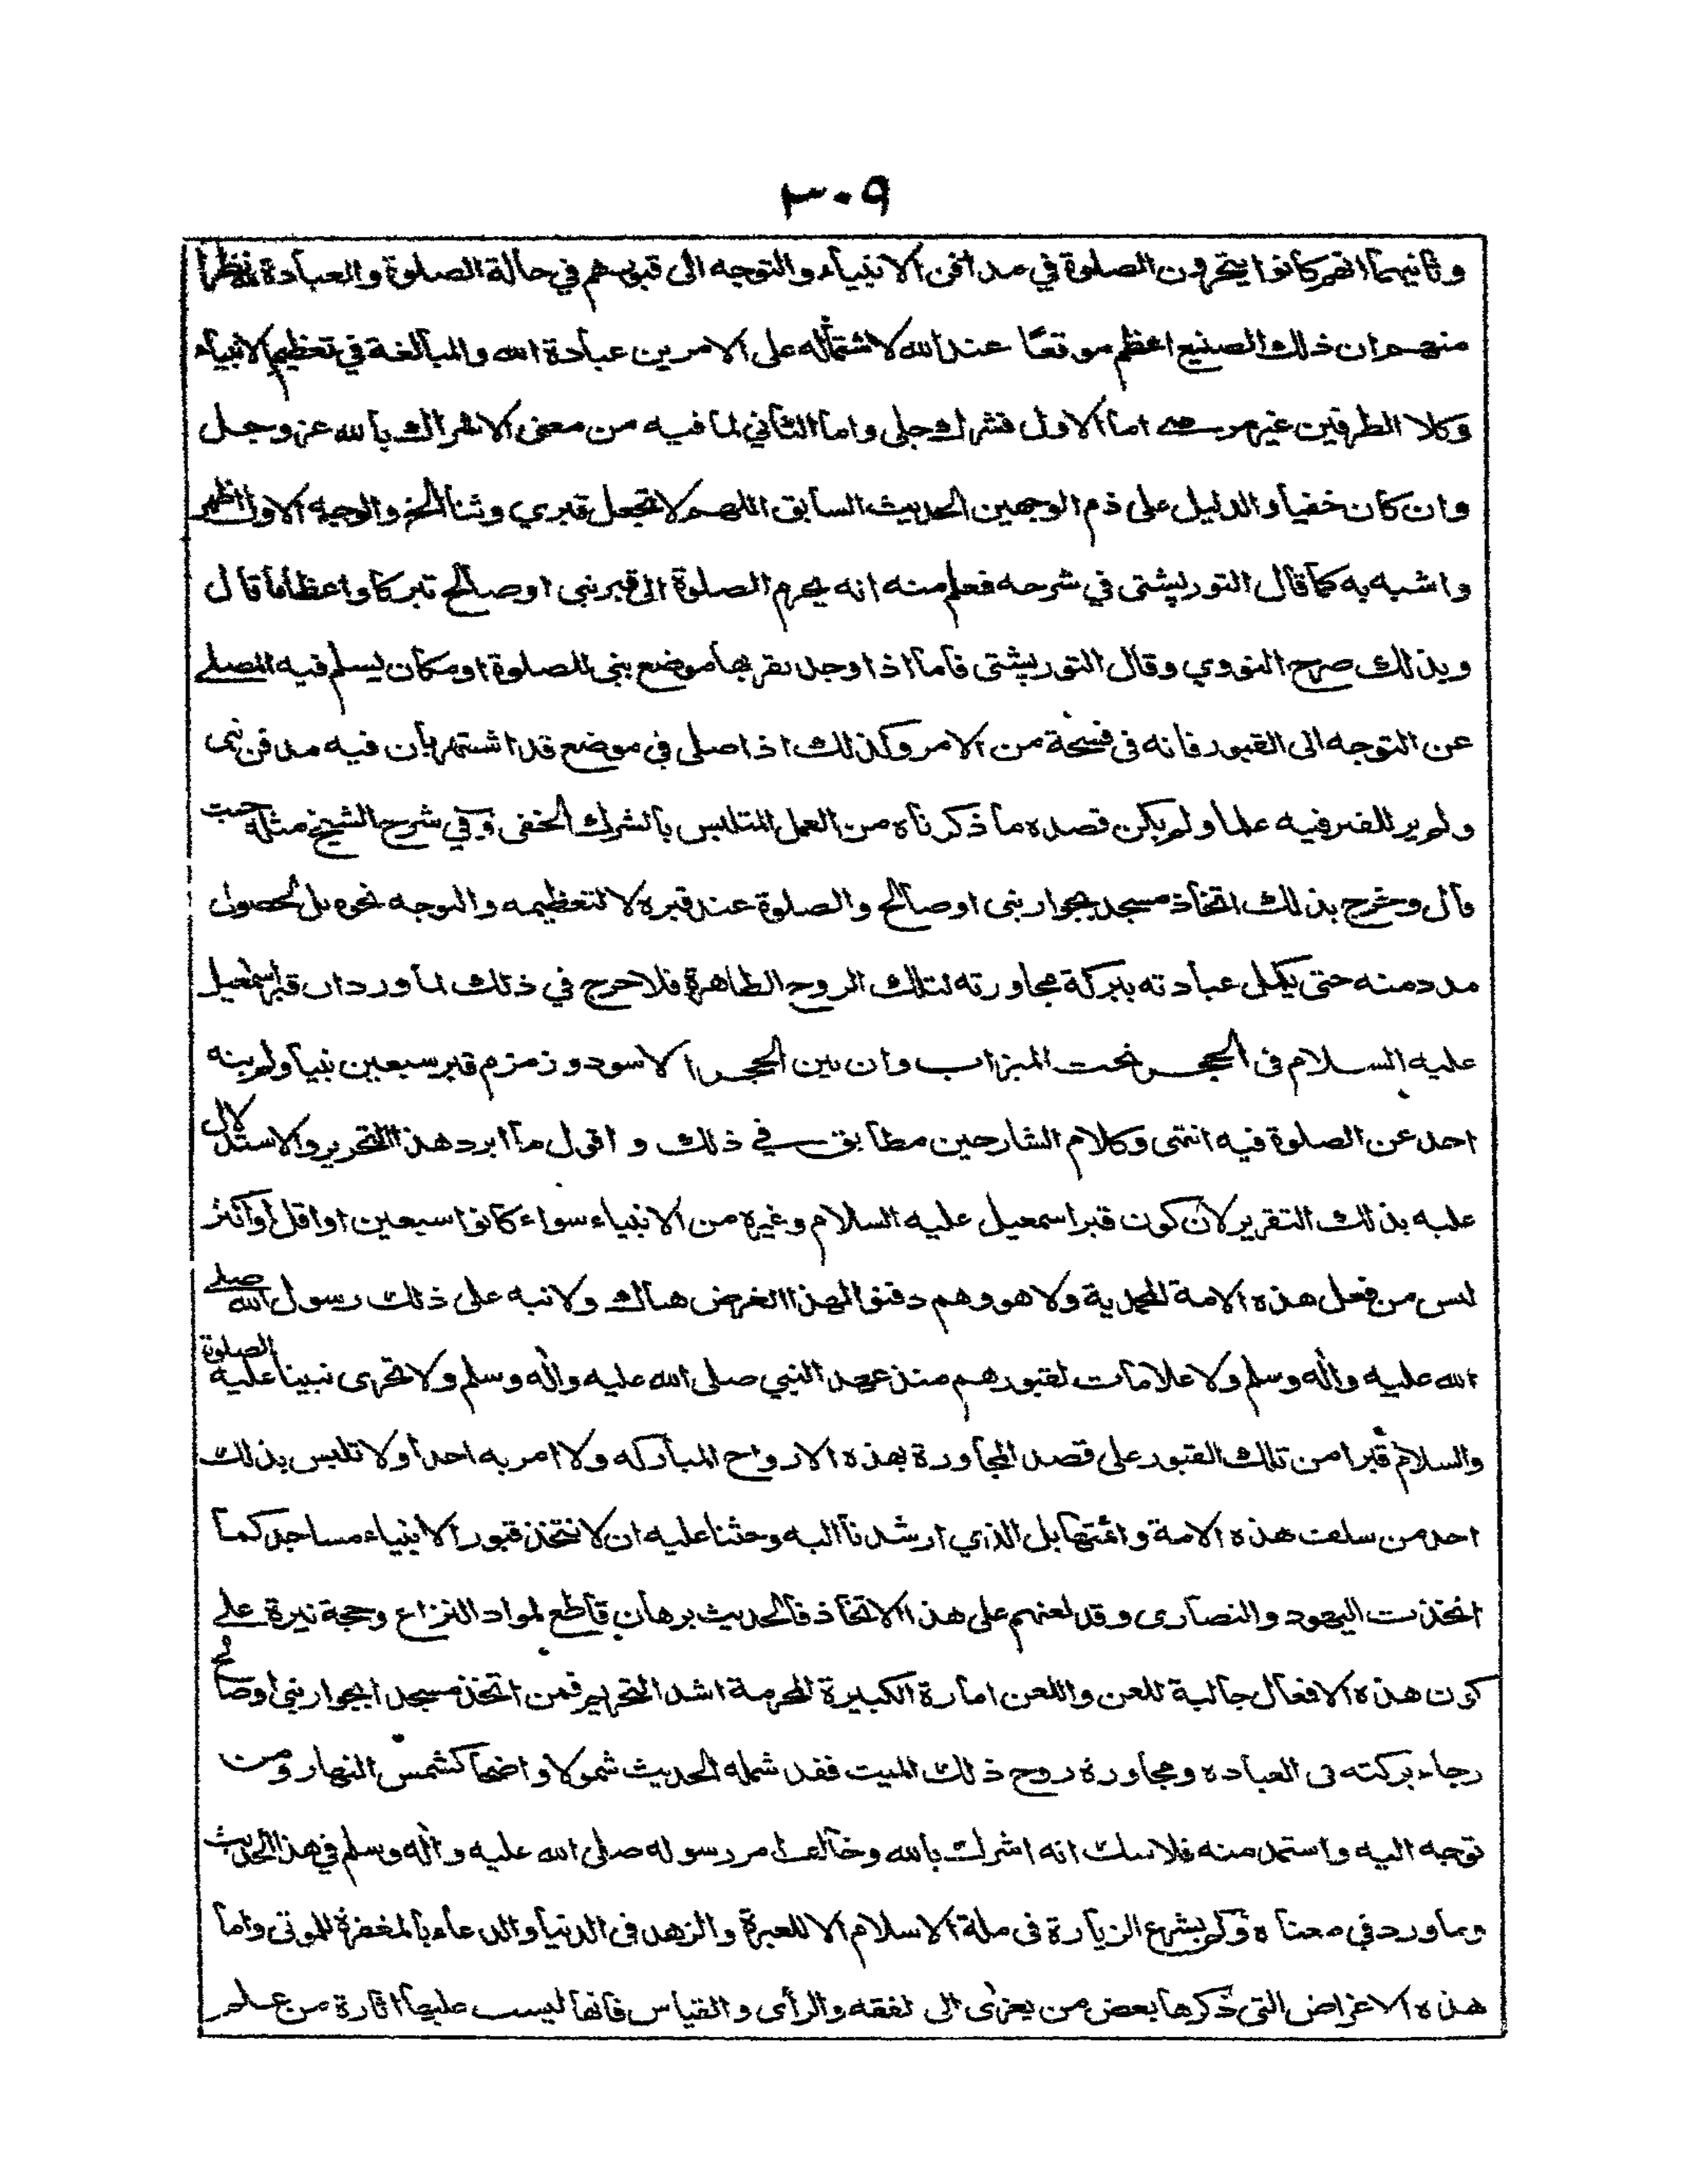 ٣٠٩
وثانيهما انهم كانوا يتحرون الصلوة في مدافن الانبياء والتوجه الى قبورهم في حالة الصلوة والعبادة لله نظرا
منهم ان ذلك الصنيع اعظم موقعا عند الله لاشتماله على الامرين عبادة الله والمبالغة في تعظيم الانبياء
وكلا الطرفين غير مرضى اما الاول فشرك جلي واما الثاني لما فيه من معنى الاشراك بالله عز وجل
وان كان خفيا والدليل على ذم الوجهين الحديث السابق اللهم لا تجعل قبري وثنا الخ والوجه الاول اظهر
واشبه به كما قال التوربشتى في شرحه فعلم منه انه يحرم الصلوة الى قبر نبى او صالح تبركا واعظاما قال
وبذلك صرح النووي وقال التوربشتى فاما اذا وجد بقربها موضع بني للصلوة او مكان يسلم فيه المصلے
عن التوجه الى القبور فانه فى فسحة من الامر وكذلك اذا صلى في موضع قد اشتهر بان فيه مدفن نبى
ولم ير للقبر فيه علما ولم يكن قصده ما ذكرناه من العمل المتلبس بالشرك الخفى وفي شرح الشيخ مثله حيث
قال وخرج بذلك اتخاذ مسجد بجوار نبى او صالح والصلوة عند قبره لا لتعظيمه والتوجه نحوه بل لحصول
مدد منه حتى يكمل عبادته ببركة مجاورته لتلك الروح الطاهرة فلا حرج في ذلك لما ورد ان قبر اسمعيل
عليه السلام فى الحجر تحت الميزاب وان بين الحجر الاسود وزمزم قبر سبعين نبيا ولم ينه
احد عن الصلوة فيه انتهى وكلام الشارحين مطابق في ذلك و اقول ما ابرد هذا التحرير والاستدلال
عليه بذلك التقرير لان كون قبر اسمعيل عليه السلام وغيره من الانبياء سواء كانوا سبعين او اقل او اكثر
ليس من فعل هذه الامة المحمدية ولا هو وهم دفنوا لهذا الغرض هناك ولا نبه على ذلك رسول الله صلے
الله عليه واله وسلم ولا علامات لقبورهم منذ عهد النبي صلى الله عليه واله وسلم ولا تحرى نبينا عليه الصلوة
والسلام قبرا من تلك القبور على قصد المجاورة بهذه الارواح المباركه ولا امر به احدا ولا تلبس بذلك
احد من سلف هذه الامة وائمتها بل الذي ارشدنا اليه وحثنا عليه ان لا نتخذ قبور الانبياء مساجد كما
اتخذت اليهود والنصارى وقد لعنهم على هذا الاتخاذ فالحديث برهان قاطع لمواد النزاع وحجة نيرة على
كون هذه الافعال جالبة للعن واللعن امارة الكبيرة المحرمة اشد التحريم فمن اتخذ مسجدا بجوار نبي او صالح
رجاء بركته في العبادة ومجاورة روح ذلك الميت فقد شمله الحديث شمولا واضحا كشمس النهار ومن
توجه اليه واستمد منه فلا شك انه اشرك بالله وخالف امر رسوله صلى الله عليه واله وسلم في هذا الحديث
وما ورد في معناه ولم يشرع الزيارة فى ملة الاسلام الا للعبرة والزهد فى الدنيا والدعاء بالمغفرة للموتى واما
هذه الاغراض التى ذكرها بعض من يعزى الى لفقه والرأى والقياس فانها ليست عليها اثارة من علم